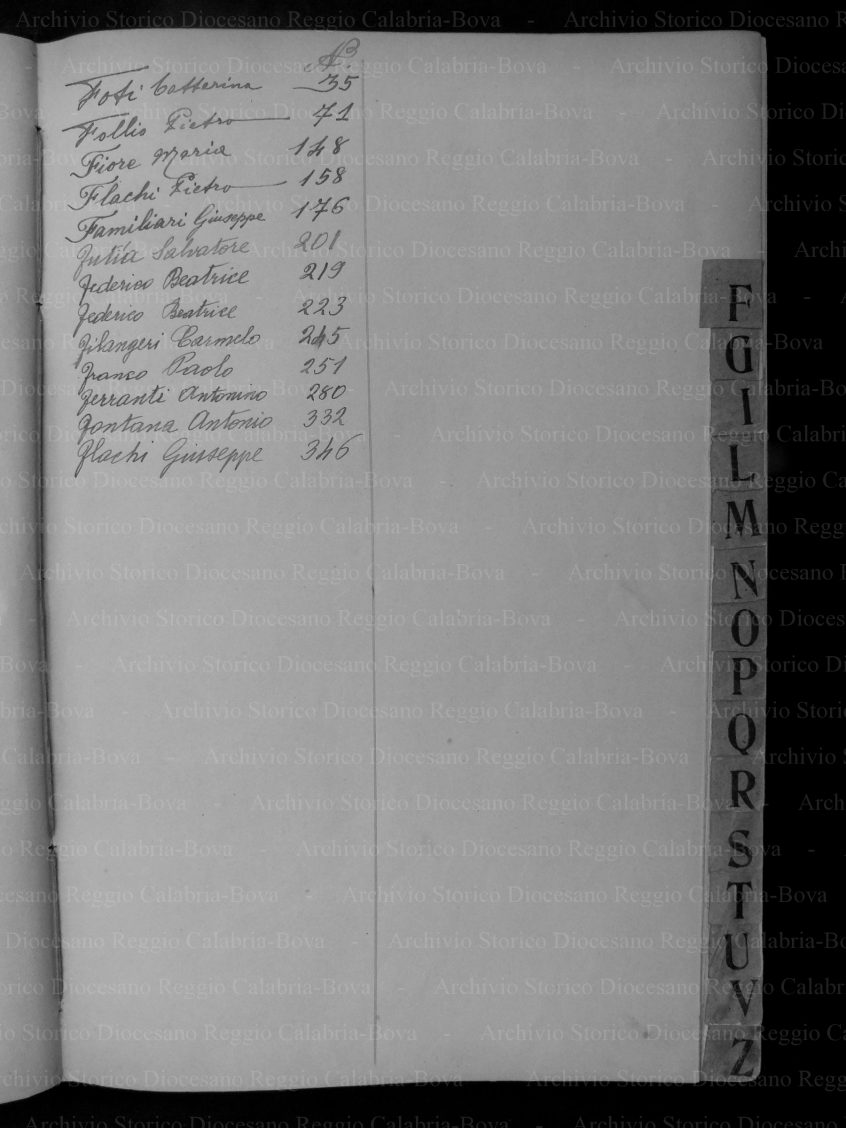 N.
Foti Catterina 35
Follio Pietro 71
Fiore Maria 148
Flachi Pietro 158
Familiari Giuseppe 176
Futia Salvatore 201
Federico Beatrice 219
Federico Beatrice 223
Filangeri Carmelo 245
Franco Paolo 251
Ferranti Antonino 280
Fontana Antonio 332
Flachi Giuseppe 346
F
G
I
L
M
N
O
P
Q
R
S
T
U
V
Z
Archivio Storico Diocesano Reggio Calabria-Bova